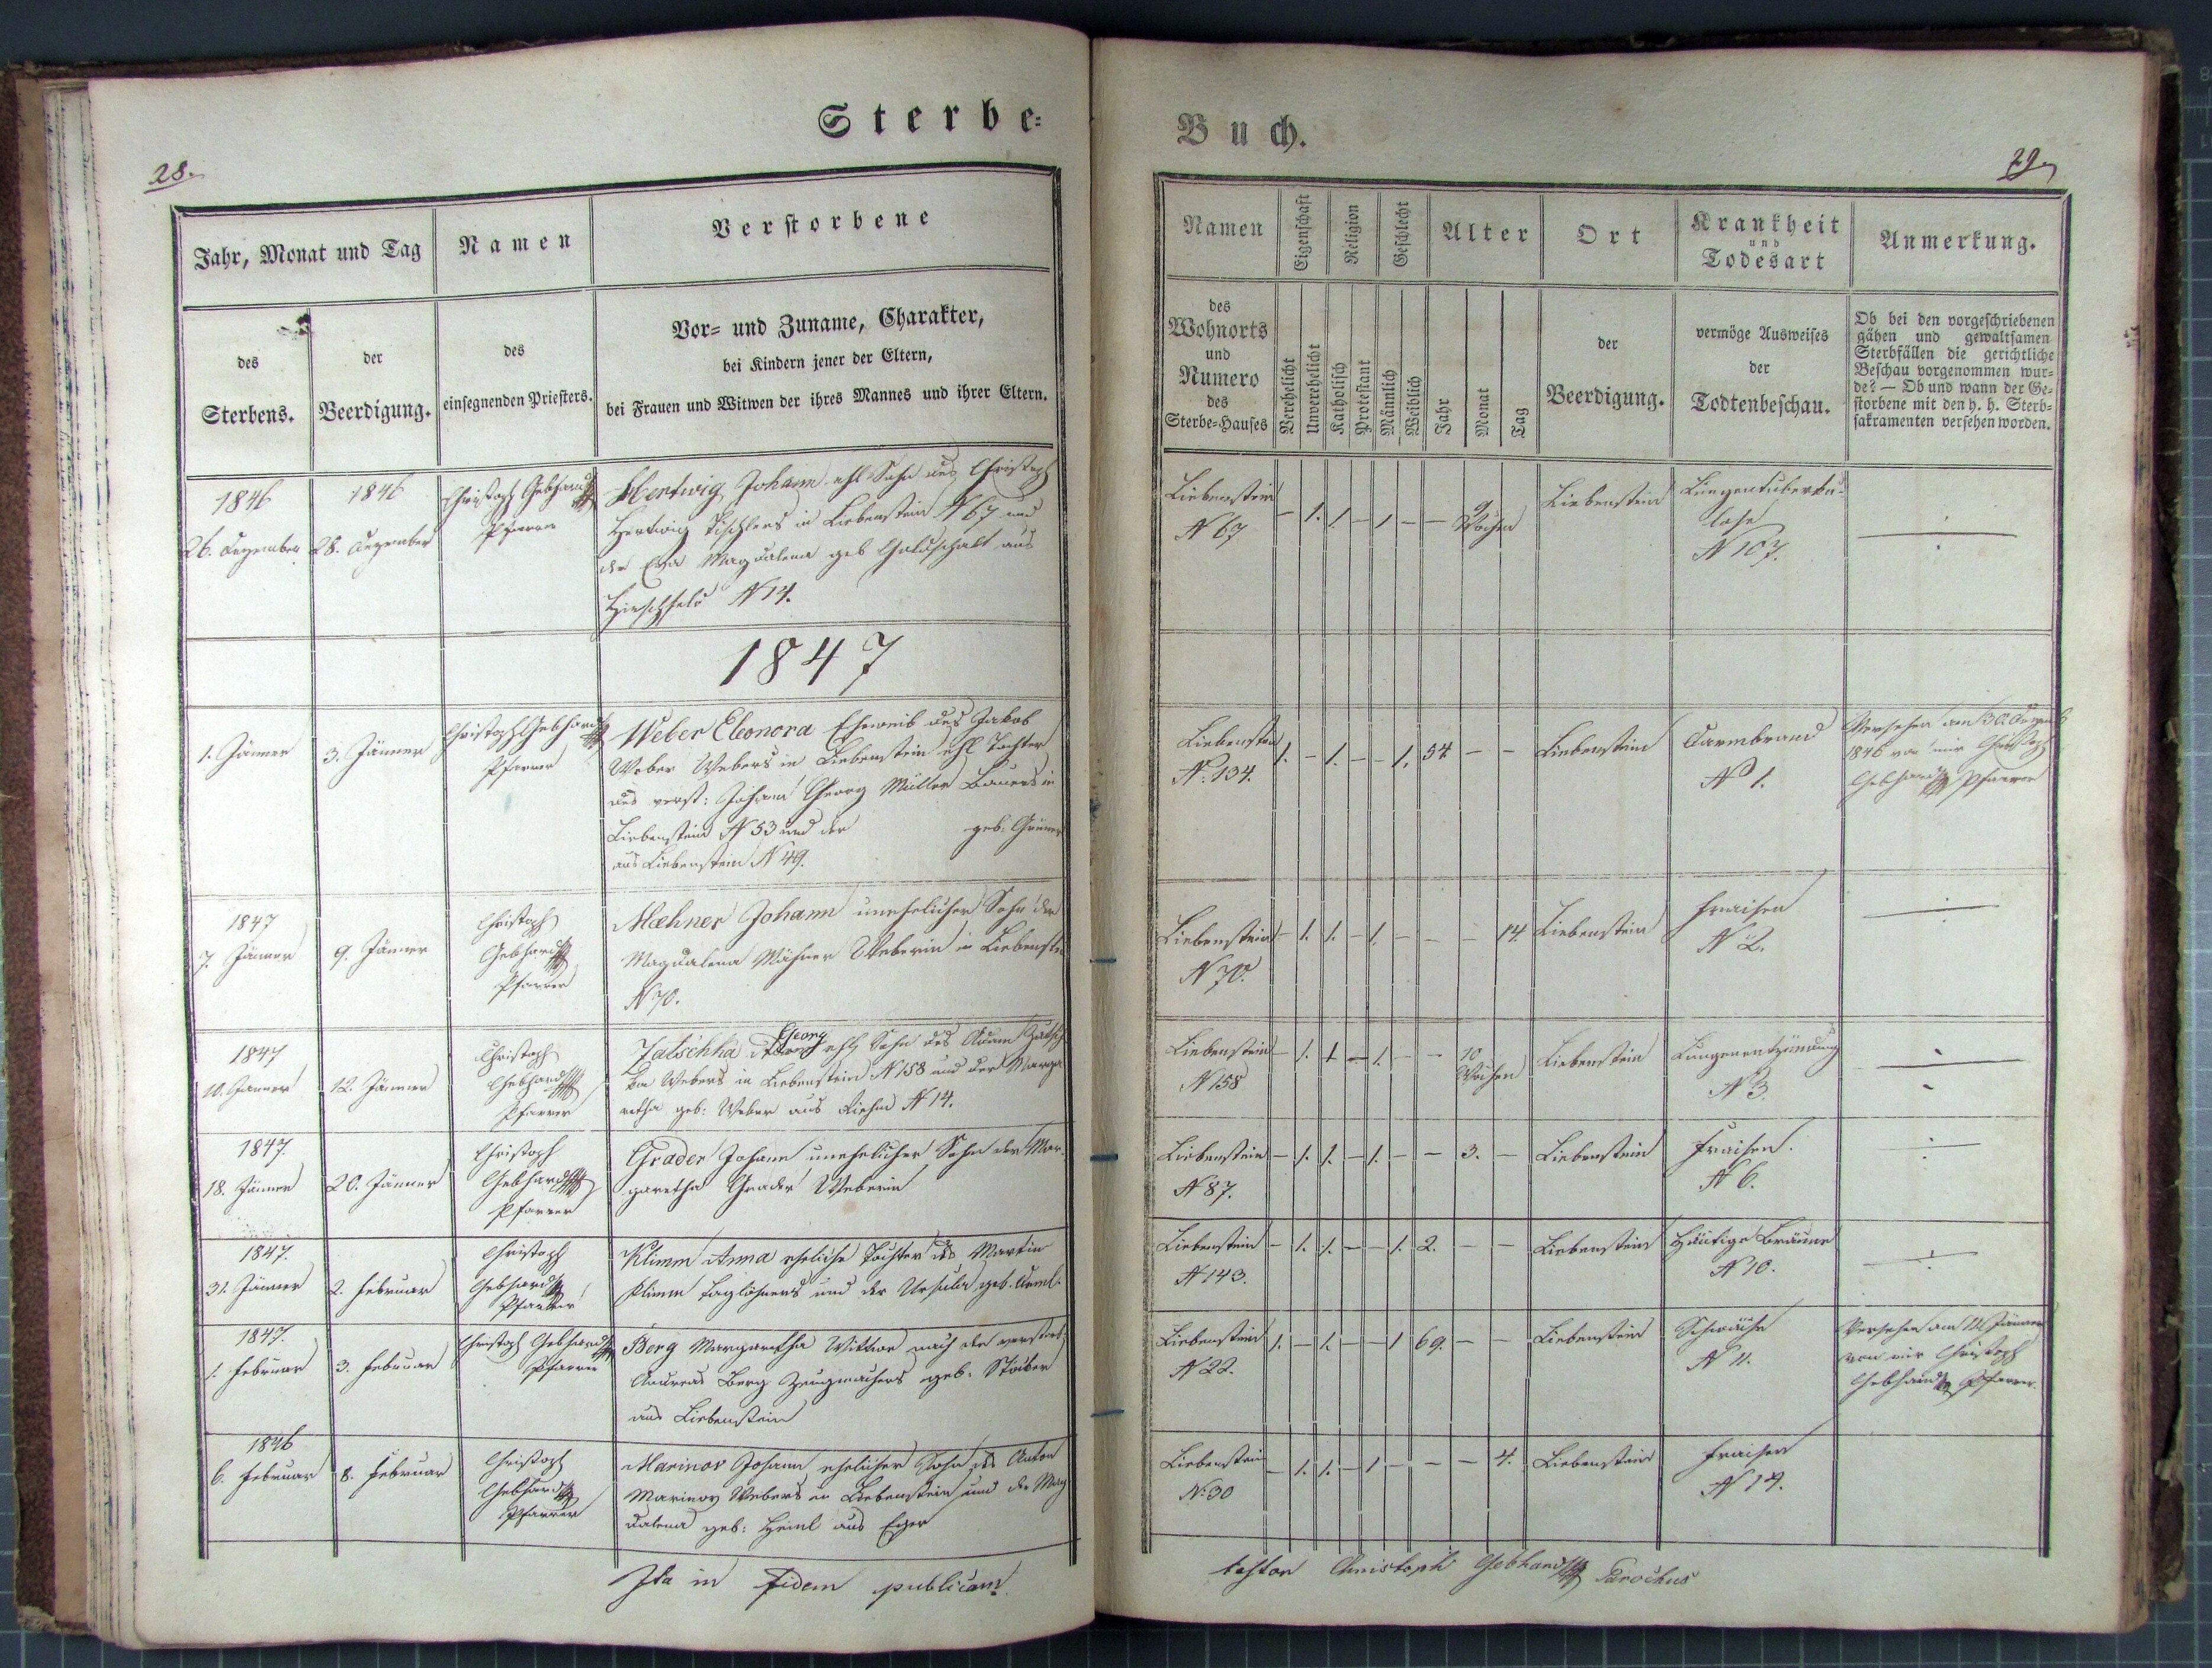 Sterbe=
28.
Jahr, Monat und Tag
Namen
Verstorbene
des
Sterbens.
der
Beerdigung.
des
einsegnenden Priesters.
Vor= und Zuname, Charakter,
bei Kindern jener der Eltern,
bei Frauen und Witwen der ihres Mannes und ihrer Eltern.
1846
26. Dezember
1846
28. Dezember
Christoph Gebhard
Pfarrer
Hertwig Johann ehl Sohn des Christoph
Hertwig Tischlers in Liebenstein N 67 und
der Eva Magdalena geb Goldschalt aus
Hirschfeld N 14.
1847
1. Jänner
3. Jänner
Christoph Gebhard
Pfarrer
Weber Eleonora Eheweib des Jakob
Weber Webers in Liebenstein ehl Tochter
des verst: Johann Georg Müller Bauers in
Liebenstein N 53 und der geb: Grüner
aus Liebenstein N 49.
1847
7. Jänner
9. Jänner
Christoph
Gebhard
Pfarrer
Mæhner Johann unehelicher Sohn der
Magdalena Mähner Weberin in Liebenstein
N 70.
1847
10. Jänner
12. Jänner
Christoph
Gebhard
Pfarrer
Georg
Zatschka ehl Sohn des Adam Zatsch
ka Webers in Liebenstein N 158 und der Marga
retha geb: Weber aus Riehm N 14.
1847.
18. Jänner
20. Jänner
Christoph
Gebhard
Pfarrer
Grader Johann unehelicher Sohn der Mar
garetha Grader Weberin
1847.
31. Jänner
2. Februar
Christoph
Gebhard
Pfarrer
Klimm Anna eheliche Tochter des Martin
Klimm Taglöhners und der Ursula geb.
1847.
1. Februar
3. Februar
Christoph Gebhard
Pfarrer
Berg Margaretha Wittwe nach dem verstorb:
Andreas Berg Zeugmachers geb. Stöcker
aus Liebenstein
1846
6. Februar
8. Februar
Christoph
Gebhard
Pfarrer
Marinov Johann ehelicher Sohn des Anton
Marinov Webers in Liebenstein und der Mag
dalena geb: Heinl aus Eger
Ita in fidem publicam.
Buch.
29.
Namen
Eigenschaft
Religion
Geschlecht
Alter
Ort
Krankheit
und
Todesart
Anmerkung.
des
Wohnorts
und
Numero
des
Sterbe=Hauses
Verehelicht
Unverehelicht
Katholisch
Protestant
Männlich
Weiblich
Jahr
Monat
Tag
der
Beerdigung.
vermöge Ausweises
der
Todtenbeschau.
Ob bei den vorgeschriebenen
gähen und gewaltsamen
Sterbfällen die gerichtliche
Beschau vorgenommen wur=
de? — Ob und wann der Ge=
storbene mit den h. h. Sterb=
sakramenten versehen worden.
Liebenstein
N 67
– 1. 1. – 1 – – 9 Wochen
Liebenstein
Lungentuberku=
lose
N 107.
Liebenstein
N. 134.
1. – 1. – – 1. 54 – –
Liebenstein
Darmbrand
N 1.
Versehen am 30. Dezemb
1846 von mir Christoph
Gebhard Pfarrer
Liebenstein
N 70.
– 1. 1. – 1. – – – 14.
Liebenstein
Fraisen
N 2.
Liebenstein
N 158
– 1. 1 – 1. – – 10 Wochen
Liebenstein
Lungenentzündung
N 3.
Liebenstein
N 87.
– 1. 1. – 1. – – 3. –
Liebenstein
Fraisen.
N 6.
Liebenstein
N 143.
– 1. 1. – – 1. 2. – –
Liebenstein
Häutige Bräune
N 10.
Liebenstein
N 22.
1. – 1. – – 1 69. – –
Liebenstein
Schwäche
N 11.
Versehen am Jänner
von mir Christoph
Gebhard Pfarrer.
Liebenstein
N. 30
– 1. 1. – 1 – – – 4.
Liebenstein
Fraisen
N 14.
testor Christoph Gebhard Parochus